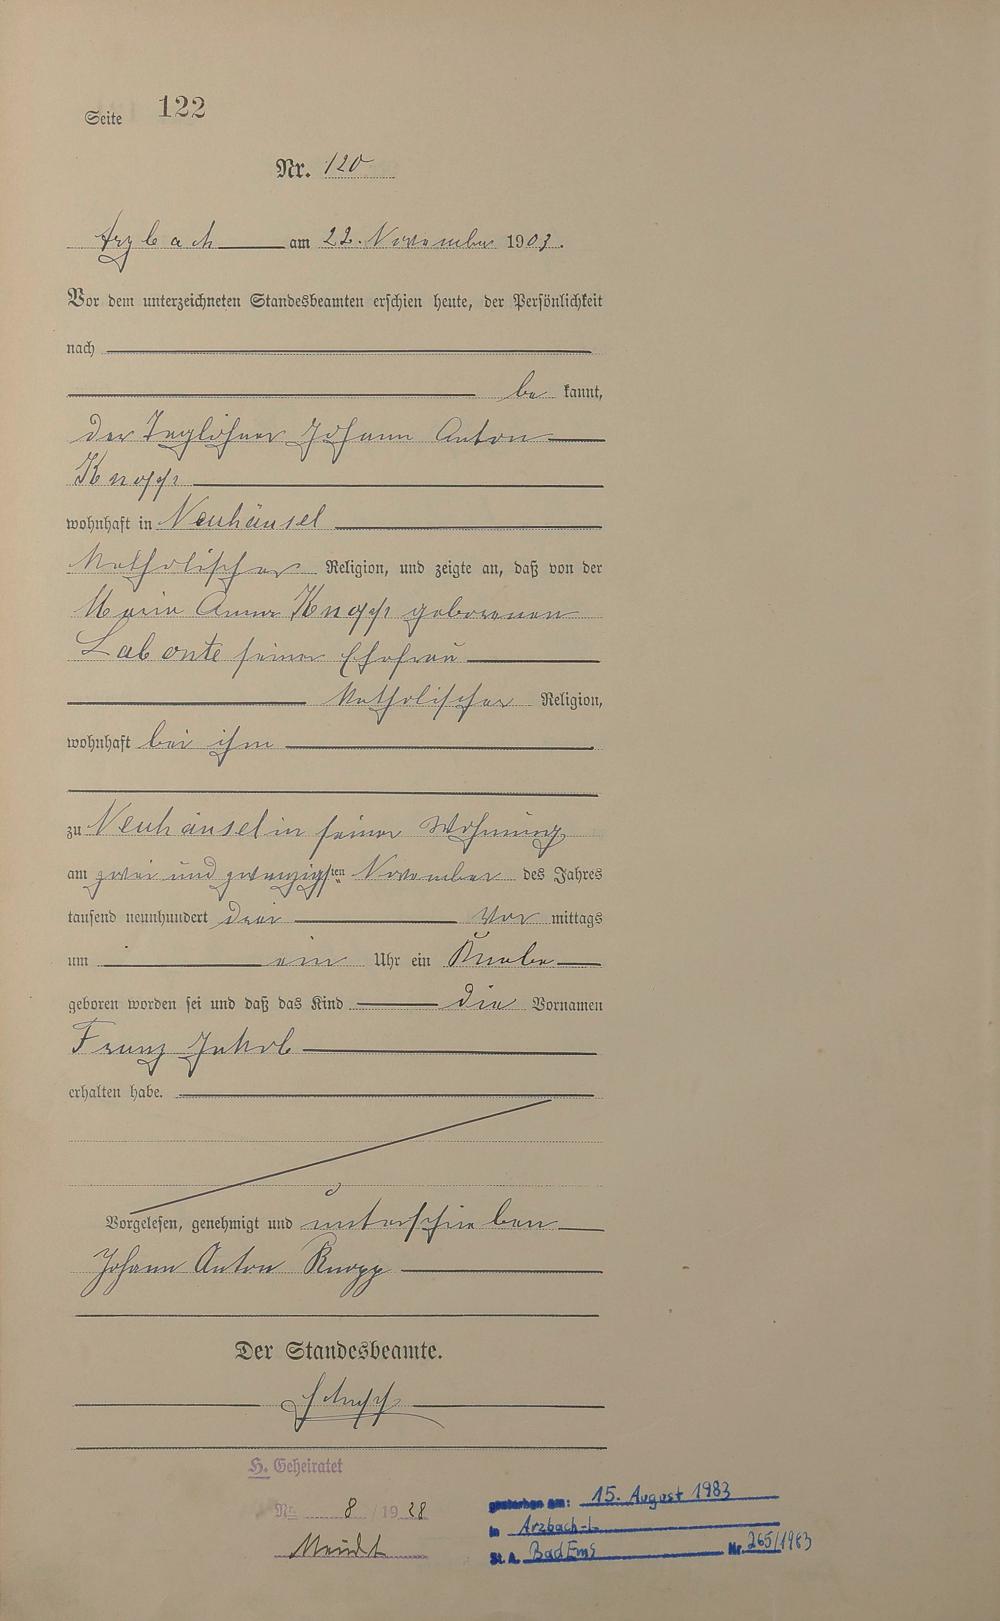 Seite 122
Nr. 120
Arzbach am 22. November 1903.
Vor dem unterzeichneten Standesbeamten erschien heute, der Persönlichkeit
nach
be kannt,
der Taglöhner Johann Anton
Knopp
wohnhaft in Neuhäusel
katholischer Religion, und zeigte an, daß von der
Maria Anna Knopp geborenen
Labonte seiner Ehefrau
katholischer Religion,
wohnhaft bei ihm
zu Neuhäusel in seiner Wohnung
am zwei und zwanzigsten November des Jahres
tausend neunhundert drei Vor mittags
um ein Uhr ein Knabe
geboren worden sei und daß das Kind die Vornamen
Franz Jakob
erhalten habe.
Vorgelesen, genehmigt und unterschrieben
Johann Anton Knopp
Der Standesbeamte.
H. Geheiratet
Nr. 8 / 1928
Meudt
gestorben am: 15. August 1983
in Arzbach-L.
St. A. Bad Ems Nr. 265/1983